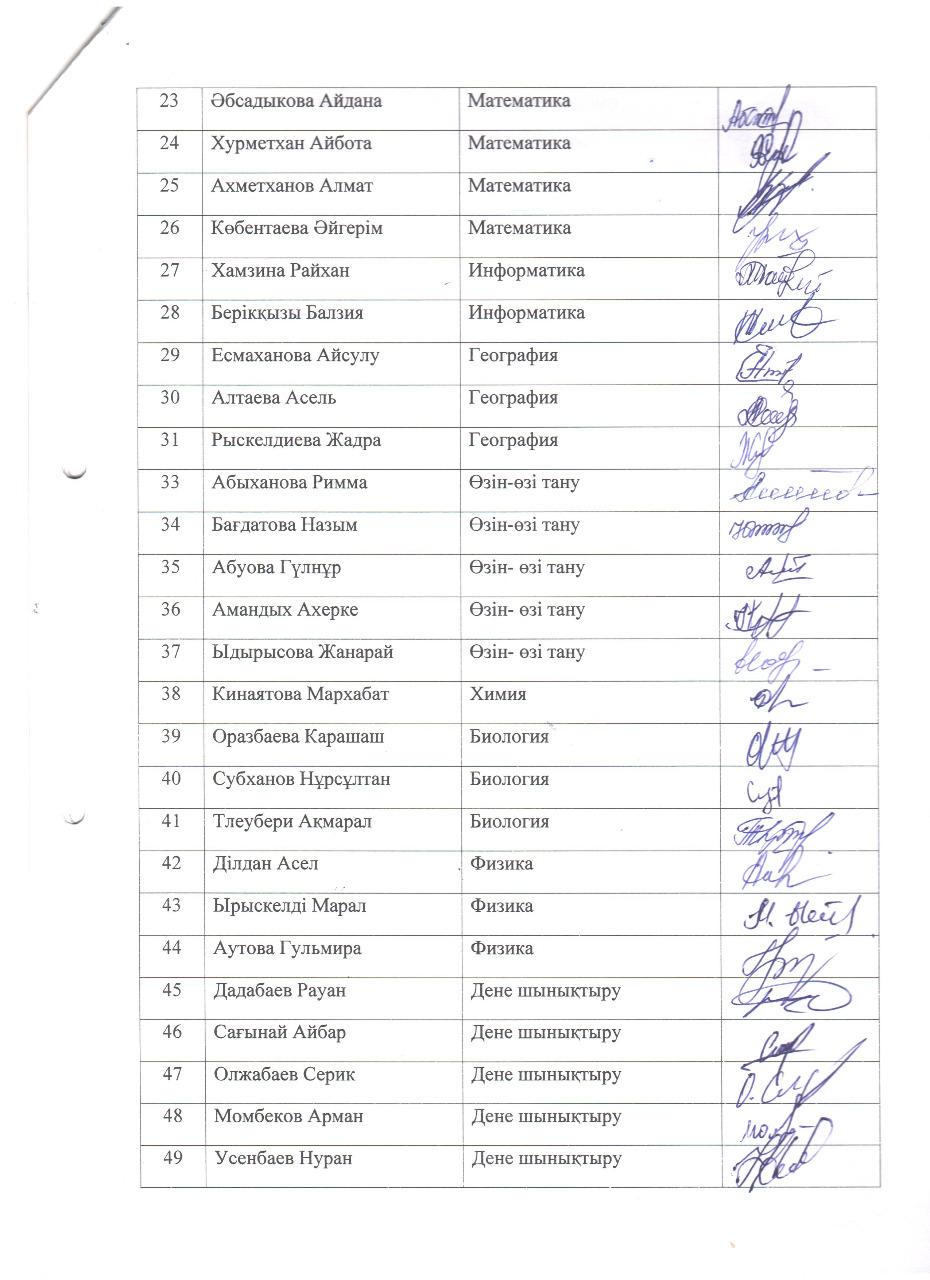 23 Әбсадыкова Айдана Математика
24 Хурметхан Айбота Математика
25 Ахметханов Алмат Математика
26 Көбентаева Әйгерім Математика
27 Хамзина Райхан Информатика
28 Берікқызы Балзия Информатика
29 Есмаханова Айсулу География
30 Алтаева Асель География
31 Рыскелдиева Жадра География
33 Абыханова Римма Өзін-өзі тану
34 Бағдатова Назым Өзін-өзі тану
35 Абуова Гүлнұр Өзін- өзі тану
36 Амандых Ахерке Өзін- өзі тану
37 Ыдырысова Жанарай Өзін- өзі тану
38 Кинаятова Мархабат Химия
39 Оразбаева Карашаш Биология
40 Субханов Нұрсұлтан Биология
41 Тлеубери Ақмарал Биология
42 Ділдан Асел Физика
43 Ырыскелді Марал Физика
44 Аутова Гульмира Физика
45 Дадабаев Рауан Дене шынықтыру
46 Сағынай Айбар Дене шынықтыру
47 Олжабаев Серик Дене шынықтыру
48 Момбеков Арман Дене шынықтыру
49 Усенбаев Нуран Дене шынықтыру